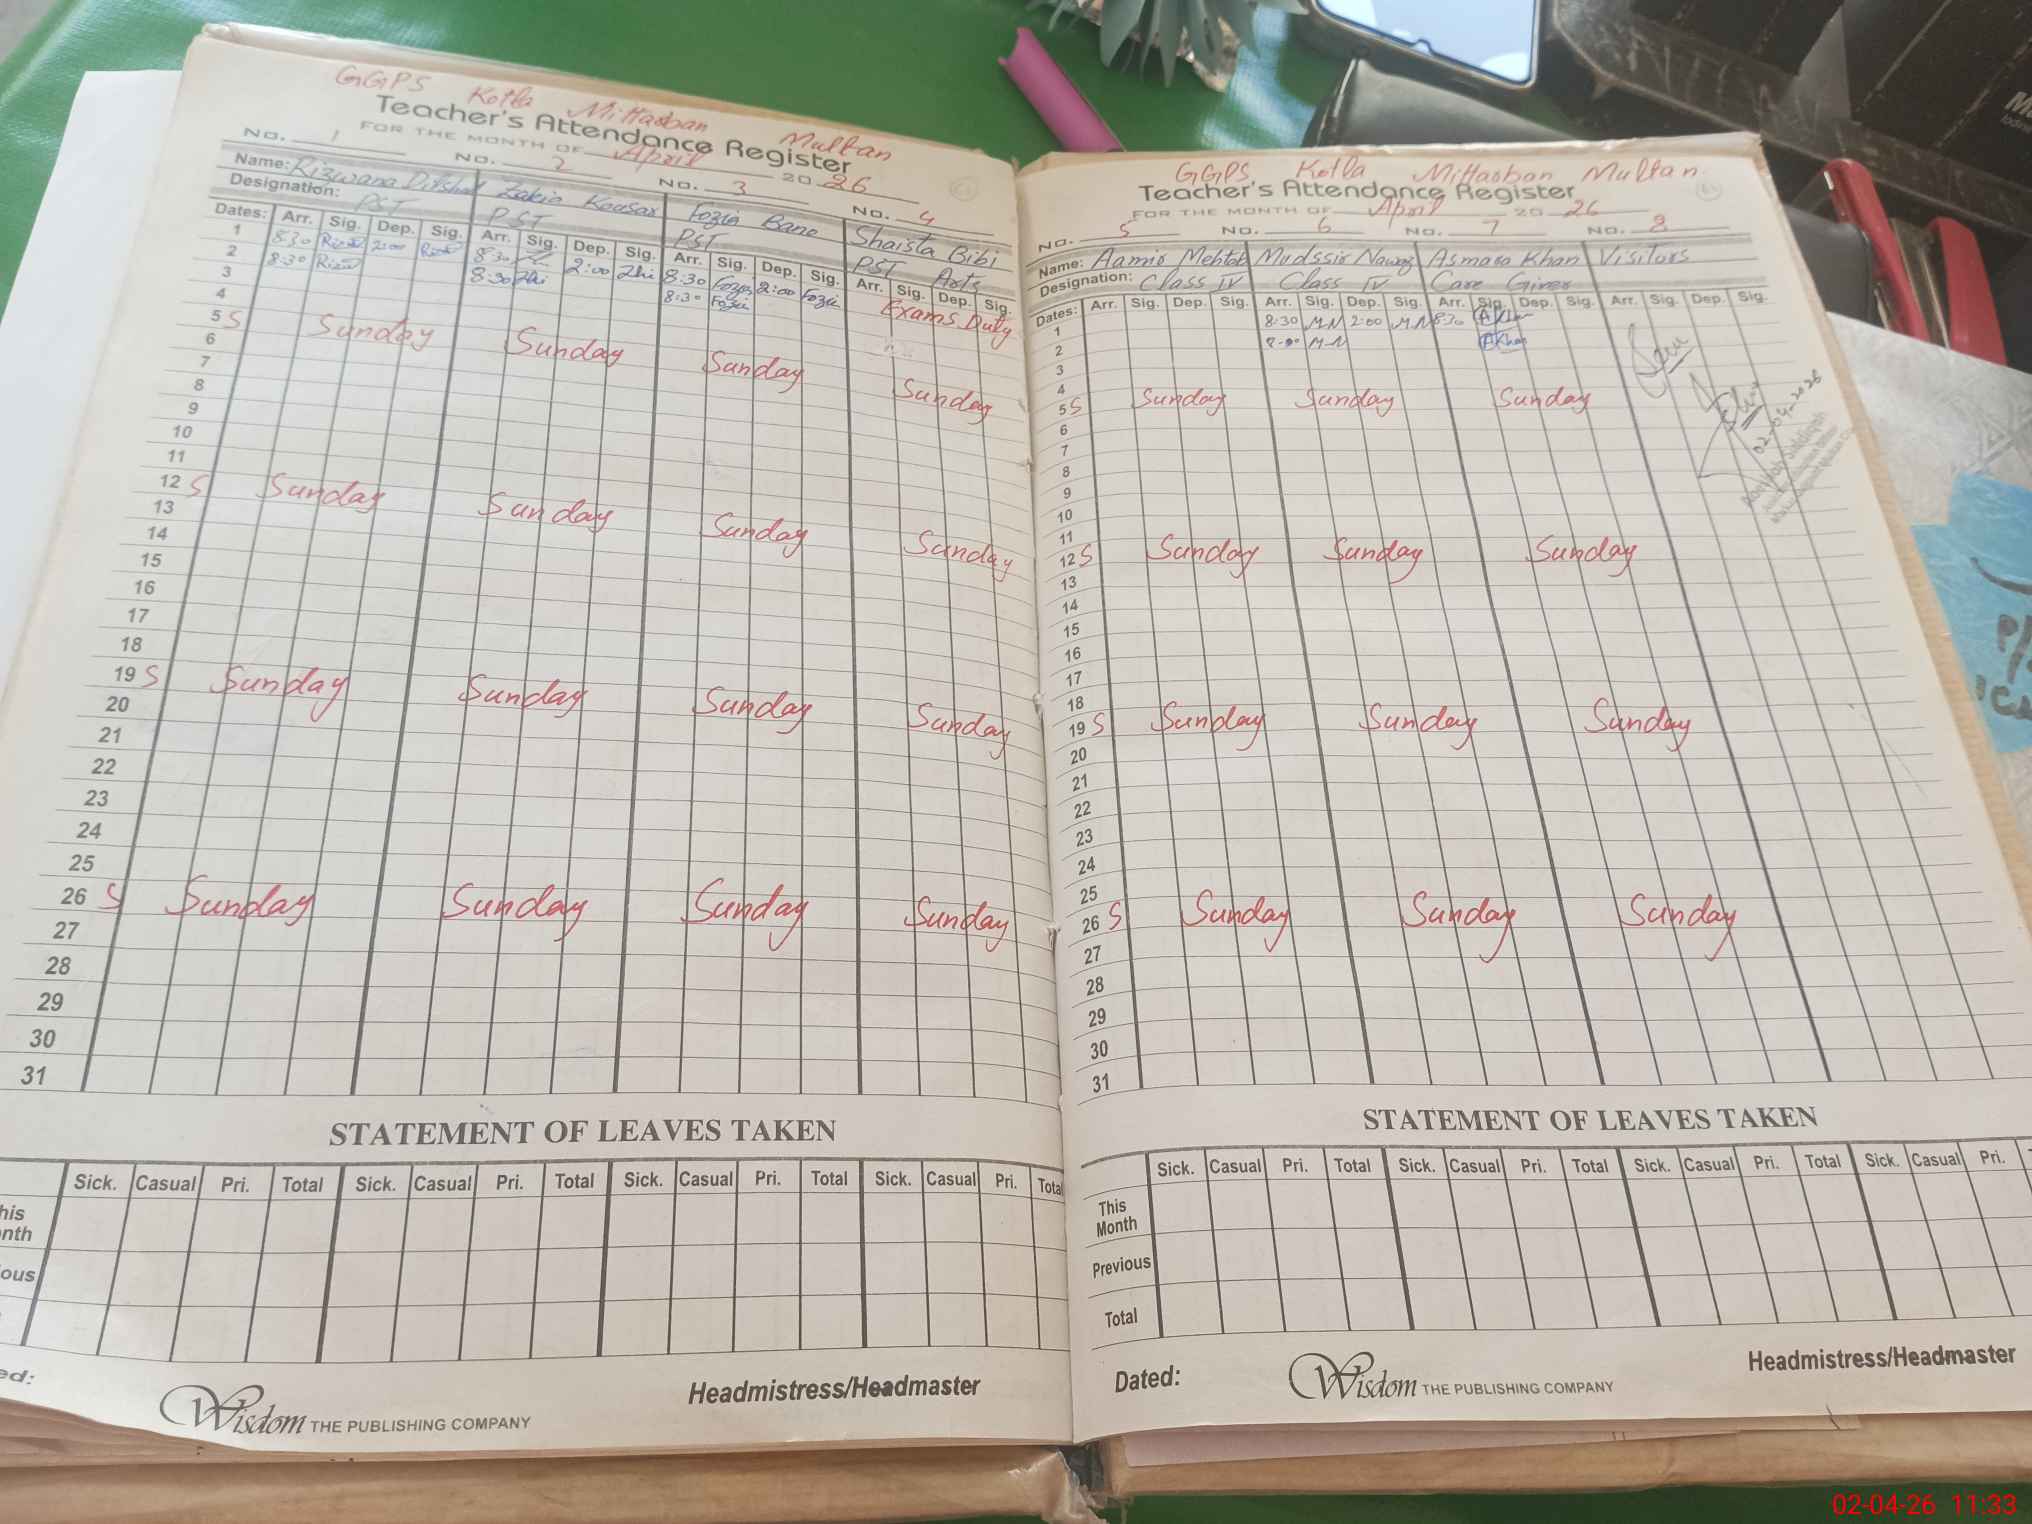 GGPS Kotla Mittasban Multan
Teacher's Attendance Register
FOR THE MONTH OF April 2026
No. 1 No. 2 No. 3 No. 4
Name: Rizwana Dilshad Zakia Kousar Fozia Bano Shaista Bibi
Designation: PST PST PST PST Arts
Dates: Arr. Sig. Dep. Sig. Arr. Sig. Dep. Sig. Arr. Sig. Dep. Sig. Arr. Sig. Dep. Sig.
1 8:30 2:00 8:30 2:00 8:30 Fozia 2:00 Fozia Exams Duty
2 8:30 8:30 8:30 Fozia
3
4
5 S Sunday Sunday Sunday Sunday
6
7
8
9
10
11
12 S Sunday Sunday Sunday Sunday
13
14
15
16
17
18
19 S Sunday Sunday Sunday Sunday
20
21
22
23
24
25
26 S Sunday Sunday Sunday Sunday
27
28
29
30
31
STATEMENT OF LEAVES TAKEN
Sick. Casual Pri. Total Sick. Casual Pri. Total Sick. Casual Pri. Total Sick. Casual Pri. Total
his
nth
ous
ed:
Headmistress/Headmaster
Wisdom THE PUBLISHING COMPANY
GGPS Kotla Mittasban Multan
Teacher's Attendance Register
FOR THE MONTH OF April 2026
No. 5 No. 6 No. 7 No. 8
Name: Aamir Mehtab Mudssir Nawaz Asmara Khan Visitors
Designation: Class IV Class IV Care Giver
Dates: Arr. Sig. Dep. Sig. Arr. Sig. Dep. Sig. Arr. Sig. Dep. Sig. Arr. Sig. Dep. Sig.
1 8:30 M.N 2:00 M.N 8:30 AKhan
2 M.N AKhan
3
4
5 S Sunday Sunday Sunday
02-04-2026
6
7
8
9
10
11
12 S Sunday Sunday Sunday
13
14
15
16
17
18
19 S Sunday Sunday Sunday
20
21
22
23
24
25
26 S Sunday Sunday Sunday
27
28
29
30
31
STATEMENT OF LEAVES TAKEN
Sick. Casual Pri. Total Sick. Casual Pri. Total Sick. Casual Pri. Total Sick. Casual Pri.
This Month
Previous
Total
Dated:
Headmistress/Headmaster
Wisdom THE PUBLISHING COMPANY
02-04-26 11:33